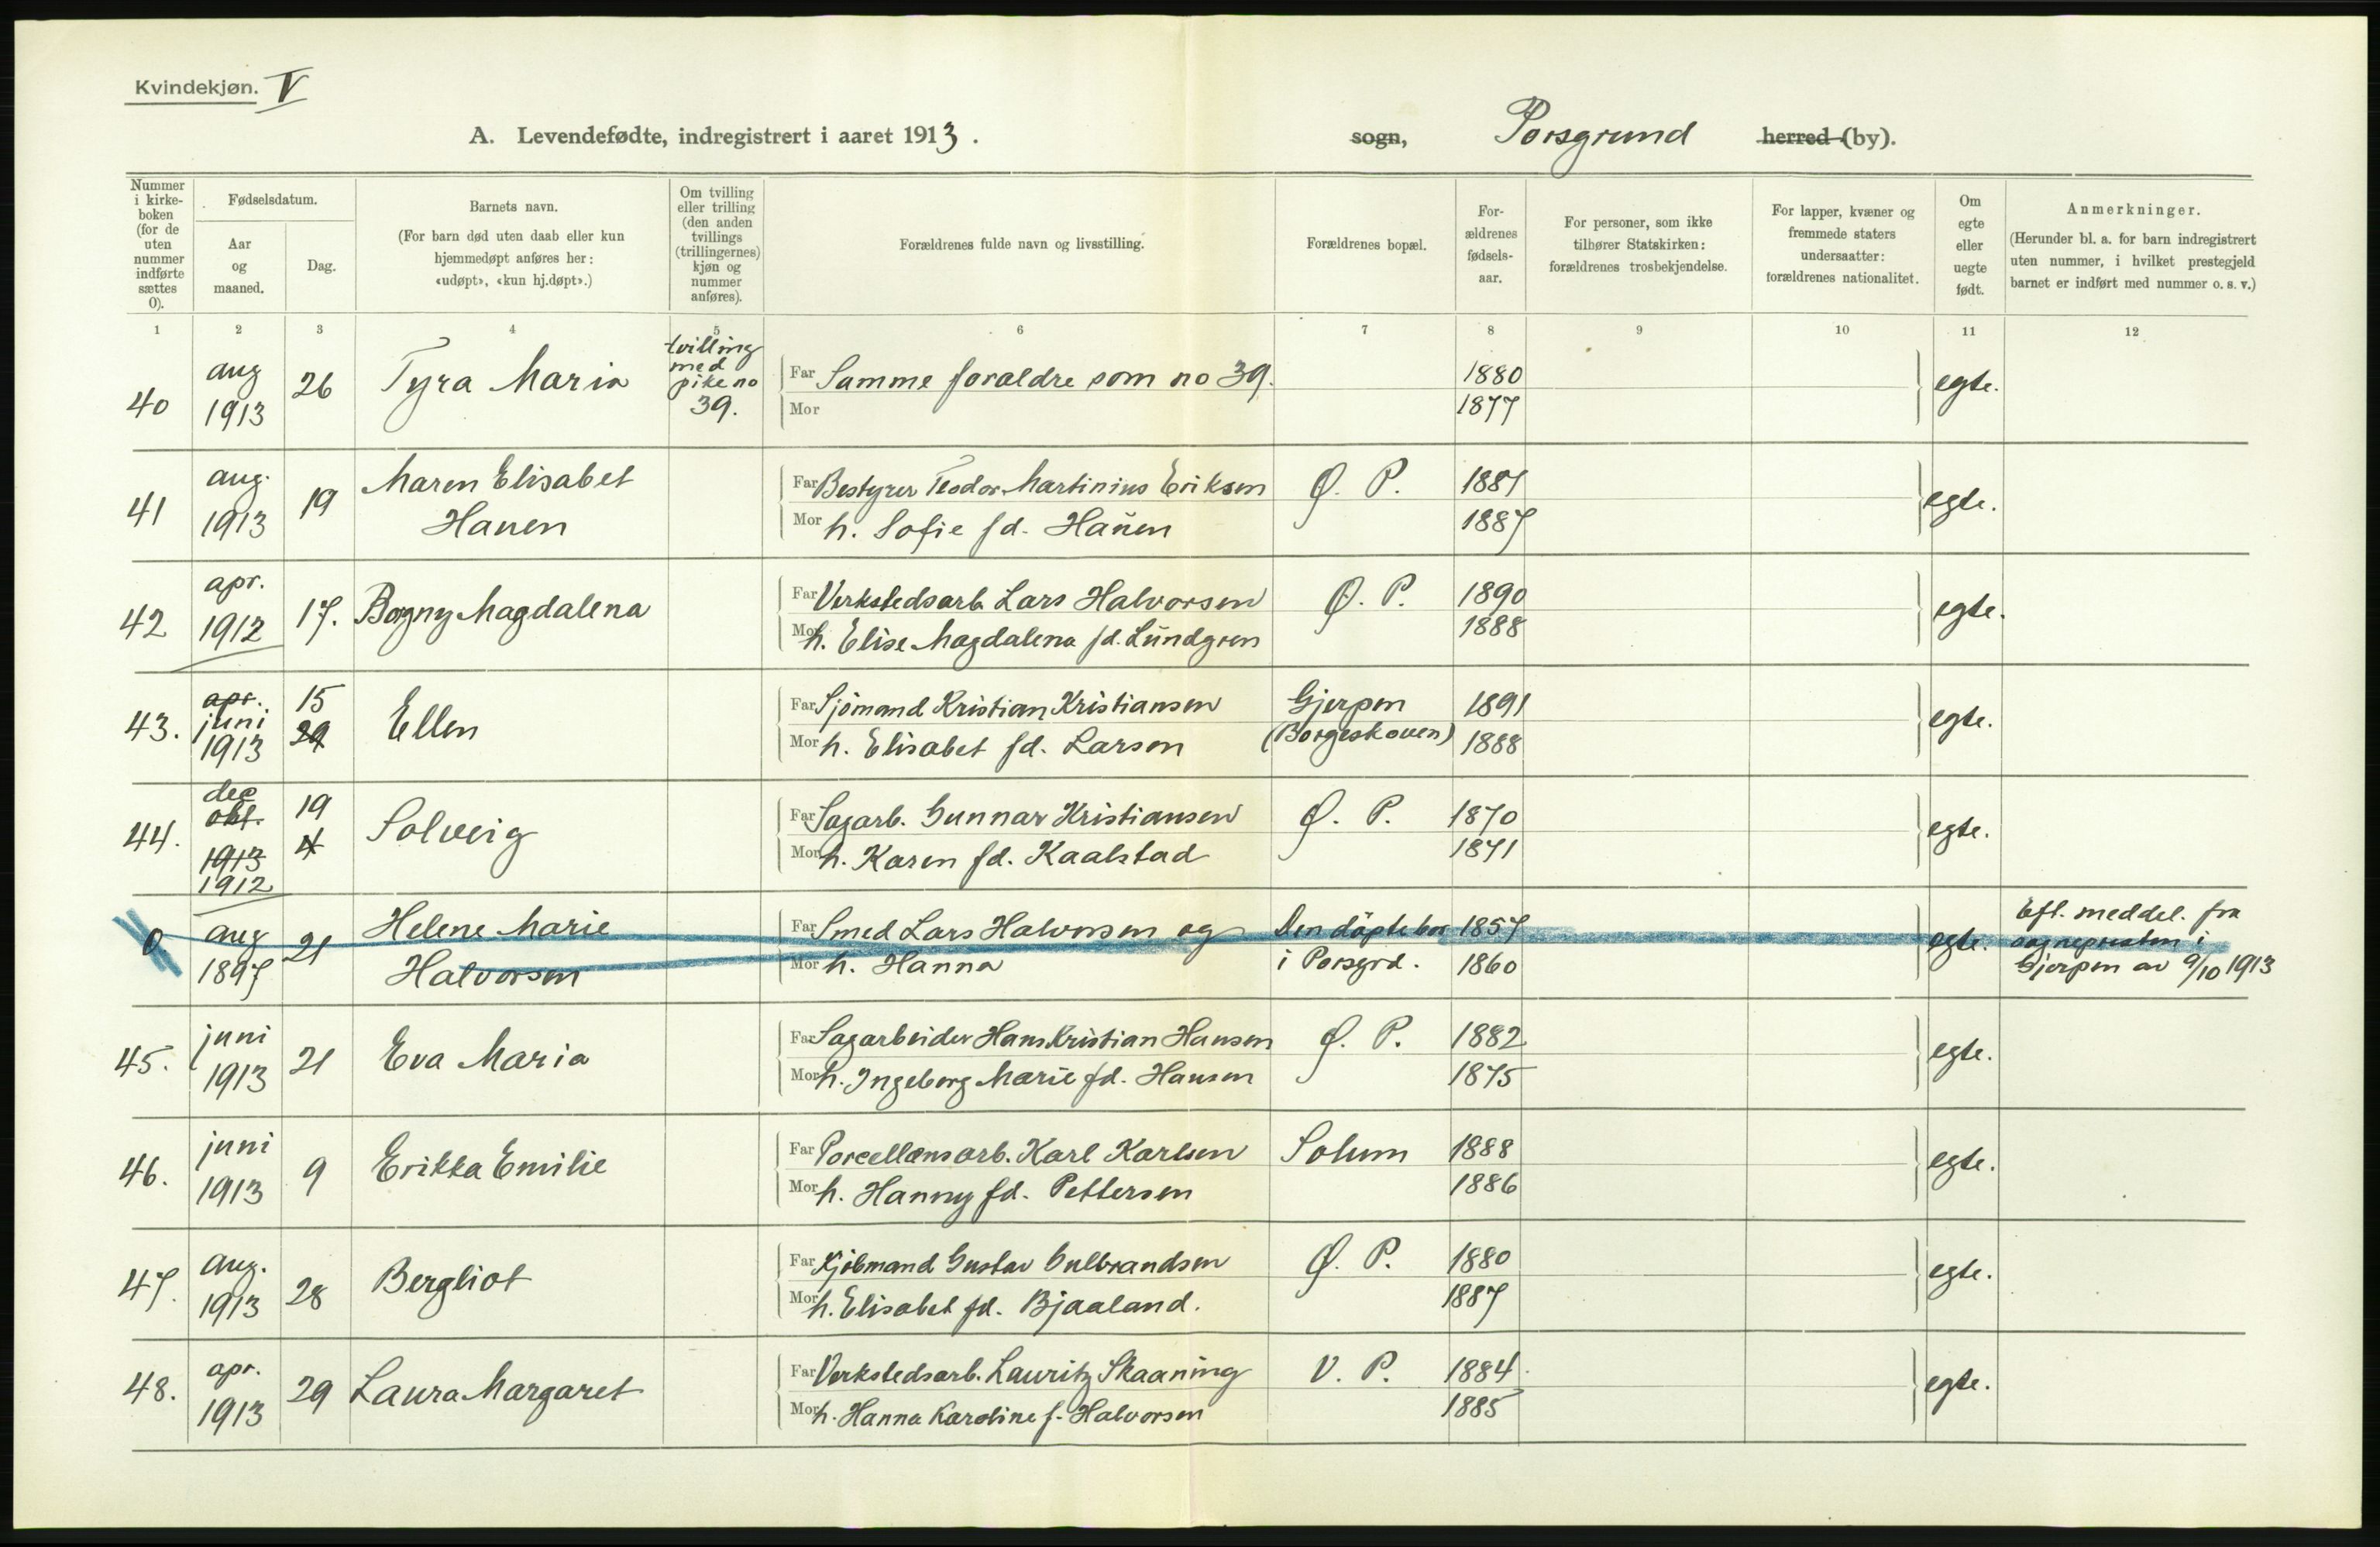 Kvindekjøn. V
A. Levendefødte, indregistrert i aaret 1913.
sogn, Porsgrund herred (by).
Nummer i kirkeboken (for de uten nummer indførte sættes 0).
Fødselsdatum.
Aar og maaned.
Dag.
Barnets navn.
(For barn død uten daab eller kun hjemmedøpt anføres her: «udøpt», «kun hj.døpt».)
Om tvilling eller trilling (den anden tvillings (trillingernes) kjøn og nummer anføres).
Forældrenes fulde navn og livsstilling.
Forældrenes bopæl.
Forældrenes fødselsaar.
For personer, som ikke tilhører Statskirken: forældrenes trosbekjendelse.
For lapper, kvæner og fremmede staters undersaatter: forældrenes nationalitet.
Om egte eller uegte født.
Anmerkninger.
(Herunder bl. a. for barn indregistrert uten nummer, i hvilket prestegjeld barnet er indført med nummer o. s. v.)
1 2 3 4 5 6 7 8 9 10 11 12
40 aug 1913 26 Tyra Maria tvilling med pike no 39. Far Samme foraldre som no 39. 1880 egte.
Mor 1877
41 aug. 1913 19 Maren Elisabet Hauen Far Bestyrer Teodor Martinius Eriksen Ø. P. 1887 egte.
Mor h. Sofie fd. Hauen 1887
42 apr. 1912 17. Borgny Magdalena Far Verkstedsarb. Lars Halvorsen Ø. P. 1890 egte.
Mor h. Elise Magdalena fd. Lundgren 1888
43. apr. juni 1913 15 29 Ellen Far Sjömand Kristian Kristiansen Gjerpen 1891 egte.
Mor h. Elisabet fd. Larsen (Borgeskouen) 1888
44. dec okt. 1913 1912 19 4 Solveig Far Sagarb. Gunnar Kristiansen Ø. P. 1870 egte.
Mor h. Karen fd. Kaalstad 1871
0. aug 1897 21 Helene Marie Halvorsen Far Smed Lars Halvorsen og Den döpte bor 1857 egte. Eft. meddel. fra sognepresten i
Mor h. Hanna i Porsgrd. 1860 Gjerpen av 9/10 1913
45. juni 1913 21 Eva Maria Far Sagarbeider Hans Kristian Hansen Ø. P. 1882 egte.
Mor h. Ingeborg Marie fd. Hansen 1875
46. juni 1913 9 Erikka Emilie Far Porcellænsarb. Karl Karlsen Solum 1888 egte.
Mor h. Hanny fd. Pettersen 1886
47. aug. 1913 28 Bergliot Far Kjöbmand Gustav Gulbrandsen Ø. P. 1880 egte.
Mor h. Elisabet fd. Bjaaland. 1887
48. apr. 1913 29 Laura Margaret Far Verkstedsarb. Lauritz Skaaning V. P. 1884 egte.
Mor h. Hanna Karoline f. Halvorsen 1885